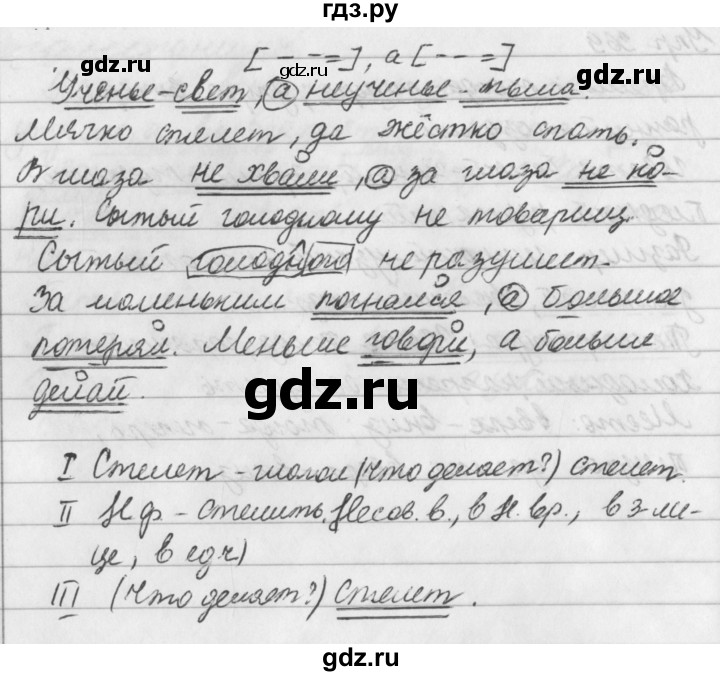 гдз.ру
[ - - - = ], а [ - - - = ]
gdz.ru gdz.ru
Ученье - свет, а неученье - тьма.
Мягко стелет, да жёстко спать.
В глаза не хвали, а за глаза не ко-
ри. Сытый голодному не товарищ.
Сытый голодного не разумеет.
За маленьким погнался, а большое
потерял. Меньше говори, а больше
gdz.ru
делай.
I Стелет - глагол (что делает?) стелет.
II Н.ф. - стелить. Несов. в., в н. вр., в 3 ли-
це, в ед.ч)
III (Что делает?) Стелет.
gdz.ru gdz.ru